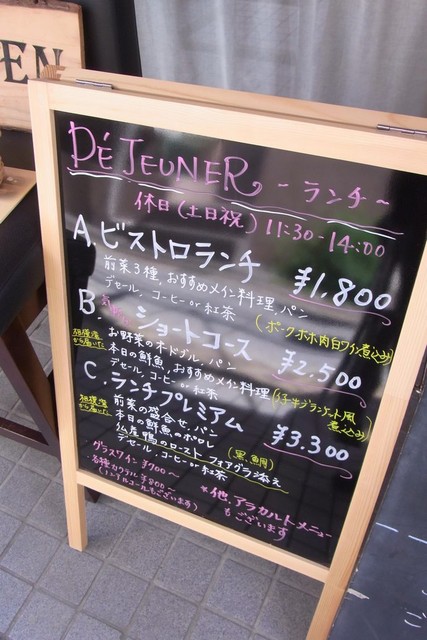 EN
DÉJEUNER ~ランチ~
休日(土日祝) 11:30-14:00
A.ビストロランチ ¥1,800
前菜3種、おすすめメイン料理、パン
デセール、コーヒーor紅茶
(ポークホホ肉白ワイン煮込み)
B. ショートコース ¥2,500
相模湾から届いた
お野菜のオードブル、パン
本日の鮮魚、おすすめメイン料理
デセール、コーヒーor紅茶
C.ランチプレミアム ¥3,300
相模湾から届いた
前菜の盛合せ、パン
本日の鮮魚のポワレ
仏産鴨のロースト フォアグラ添え
デセール、コーヒーor紅茶
グラスワイン ¥700~
各種カクテル ¥800~
(ノンアルコールもございます)
*他、アラカルトメニュー
もございます